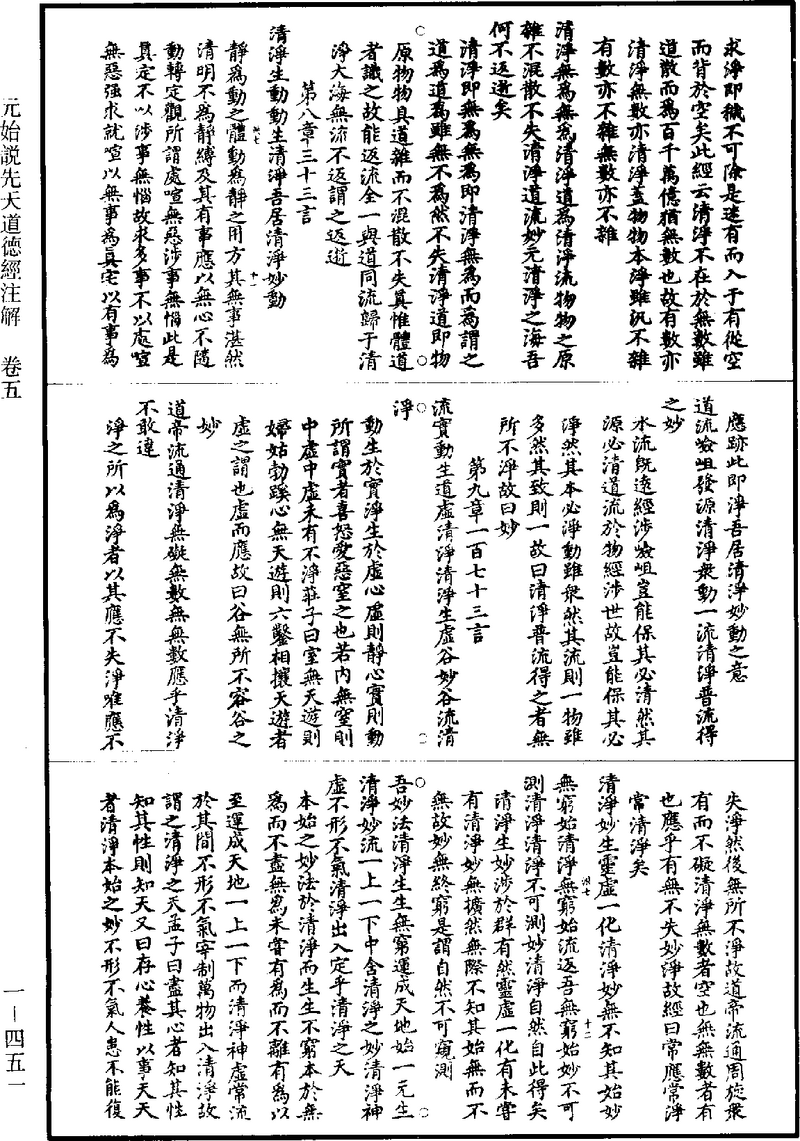 求淨即穢不可除是迷有而入于有從空
而背於空矣此經云清淨不在於無數雖
道散而為百千萬億猶無數也故有數亦
清淨無數亦清淨蓋物物本淨雖汎不雜
有數亦不雜無數亦不雜
清淨無為無為清淨道為清淨流物物之原
雜不混散不失清淨道流妙元清淨之海吾
何不返逝矣
清淨即無為無為即清淨無為而為謂之
道為道為雖無不為然不失清淨道即物
原物物具道雜而不混散不失真惟體道
者識之故能返流全一與道同流歸于清
淨大海無流不返謂之返逝
第八章三十三言
清淨生動動生清淨吾居清淨妙動
靜為動之體動為靜之用方其無事湛然
清明不為靜縛及其有事應以無心不隨
動轉定觀所謂處喧無惡涉事無惱此是
真定不以涉事無惱故求多事不以處喧
無惡强求就喧以無事為真宅以有事為
應跡此即淨吾居清淨妙動之意
道流嶮岨發源清淨衆動一流清淨普流得
之妙
水流既遠經涉嶮岨豈能保其必清然其
源必清道流於物經涉世故豈能保其必
淨然其本必淨動雖衆然其流則一物雖
多然其致則一故曰清淨普流得之者無
所不淨故曰妙
第九章一百七十三言
流實動生道虛清淨清淨生虛谷妙谷流清
淨
動生於實淨生於虛心虛則靜心實則動
所謂實者喜怒愛惡窒之也若内無窒則
中虛中虛未有不淨莊子曰室無天遊則
婦姑勃蹊心無天遊則六鑿相攘天遊者
虛之謂也虛而應故曰谷無所不容谷之
妙
道帝流通清淨無礙無數無無數應乎清淨
不敢違
淨之所以為淨者以其應不失淨唯應不
失淨然後無所不淨故道帝流通周旋衆
有而不礙清淨無數者空也無無數者有
也應乎有無不失妙淨故經曰常應常淨
常清淨矣
清淨妙生靈虛一化清淨妙無不知其始妙
無窮始清淨無窮始流返吾無窮始妙不可
測清淨清淨不可測妙清淨自然自此得矣
清淨生妙涉於群有然靈虛一化有未甞
有清淨妙無擴然無際不知其始無而不
無故妙無終窮是謂自然不可窺測
吾妙法清淨生生無窮運成天地始一元生
清淨妙流一上一下中含清淨之妙清淨神
虛不形不氣清淨出入定乎清淨之天
本始之妙法於清淨而生生不窮本於無
為而不盡無為未甞有為而不離有為以
至運成天地一上一下而清淨神虛常流
於其間不形不氣宰制萬物出入清淨故
謂之清淨之天孟子曰盡其心者知其性
知其性則知天又曰存心養性以事天天
者清淨本始之妙不形不氣人患不能復
元始説先天道德經注解　卷五
一—四五一